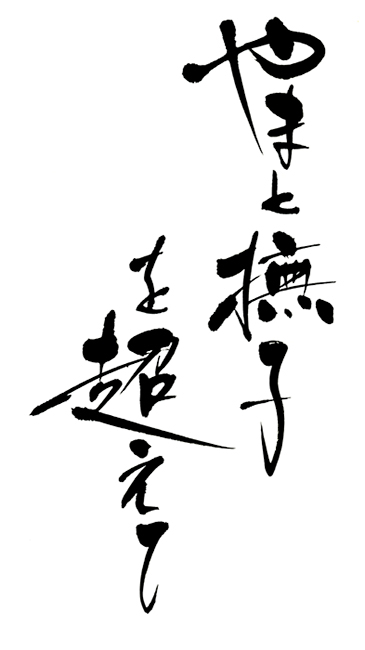 やまと撫子
を超えて